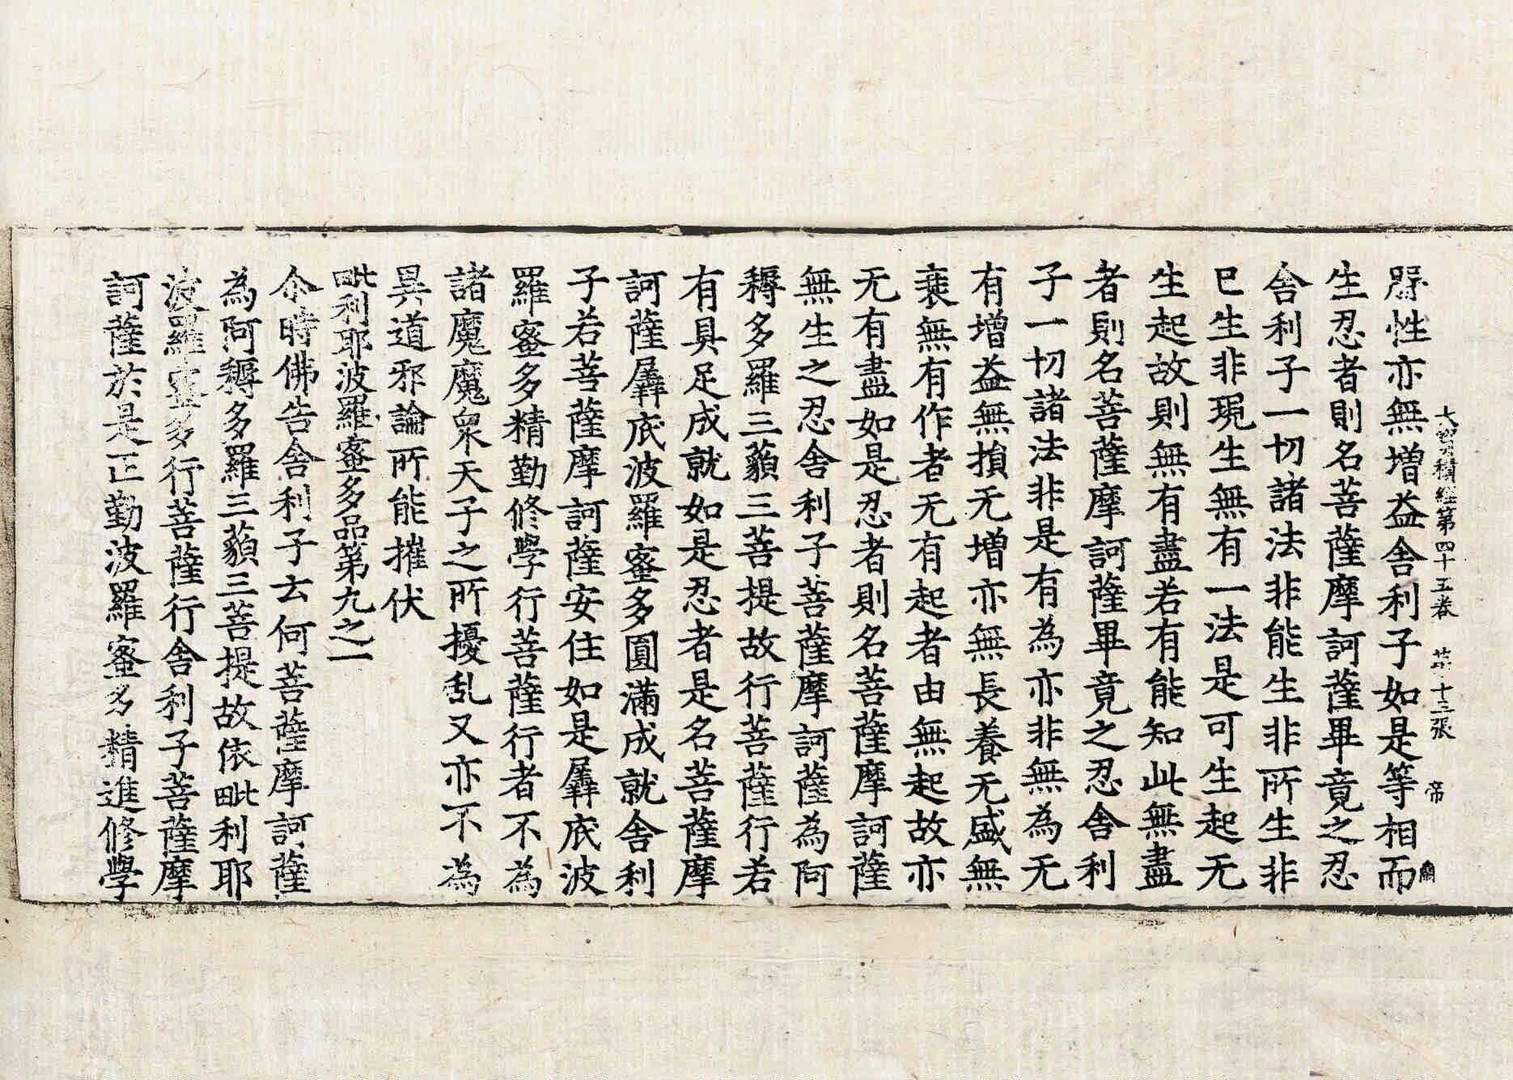 大寶積經第四十五卷 第十三張 帝
性亦無增益舍利子如是等相而
生忍者則名菩薩摩訶薩畢竟之忍
舍利子一切諸法非能生非所生非
已生非現生無有一法是可生起无
生起故則無有盡若有能知此無盡
者則名菩薩摩訶薩畢竟之忍舍利
子一切諸法非是有為亦非無為无
有增益無損无增亦無長養无盛無
衰無有作者无有起者由無起故亦
无有盡如是忍者則名菩薩摩訶薩
無生之忍舍利子菩薩摩訶薩為阿
耨多羅三藐三菩提故行菩薩行若
有具足成就如是忍者是名菩薩摩
訶薩羼底波羅蜜多圓滿成就舍利
子若菩薩摩訶薩安住如是羼底波
羅蜜多精勤修學行菩薩行者不為
諸魔魔眾天子之所擾乱又亦不為
異道邪論所能摧伏
毗利耶波羅蜜多品第九之一
尒時佛告舍利子云何菩薩摩訶薩
為阿耨多羅三藐三菩提故依毗利耶
波羅蜜多行菩薩行舍利子菩薩摩
訶薩於是正勤波羅蜜多精進修學